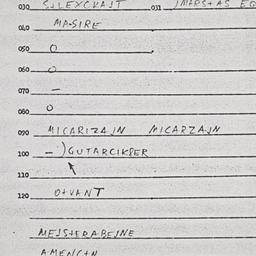 030 SILEXCKAST 031 IMPSTAS EG
040 MA-SIRE
050 O
060 O
070 —
080 O
090 MICARIZAJN MICARZAJN
100 —)GUTARCIKSER
110
120 O+VANT
MEJSTERABEJNE
AMENCTN